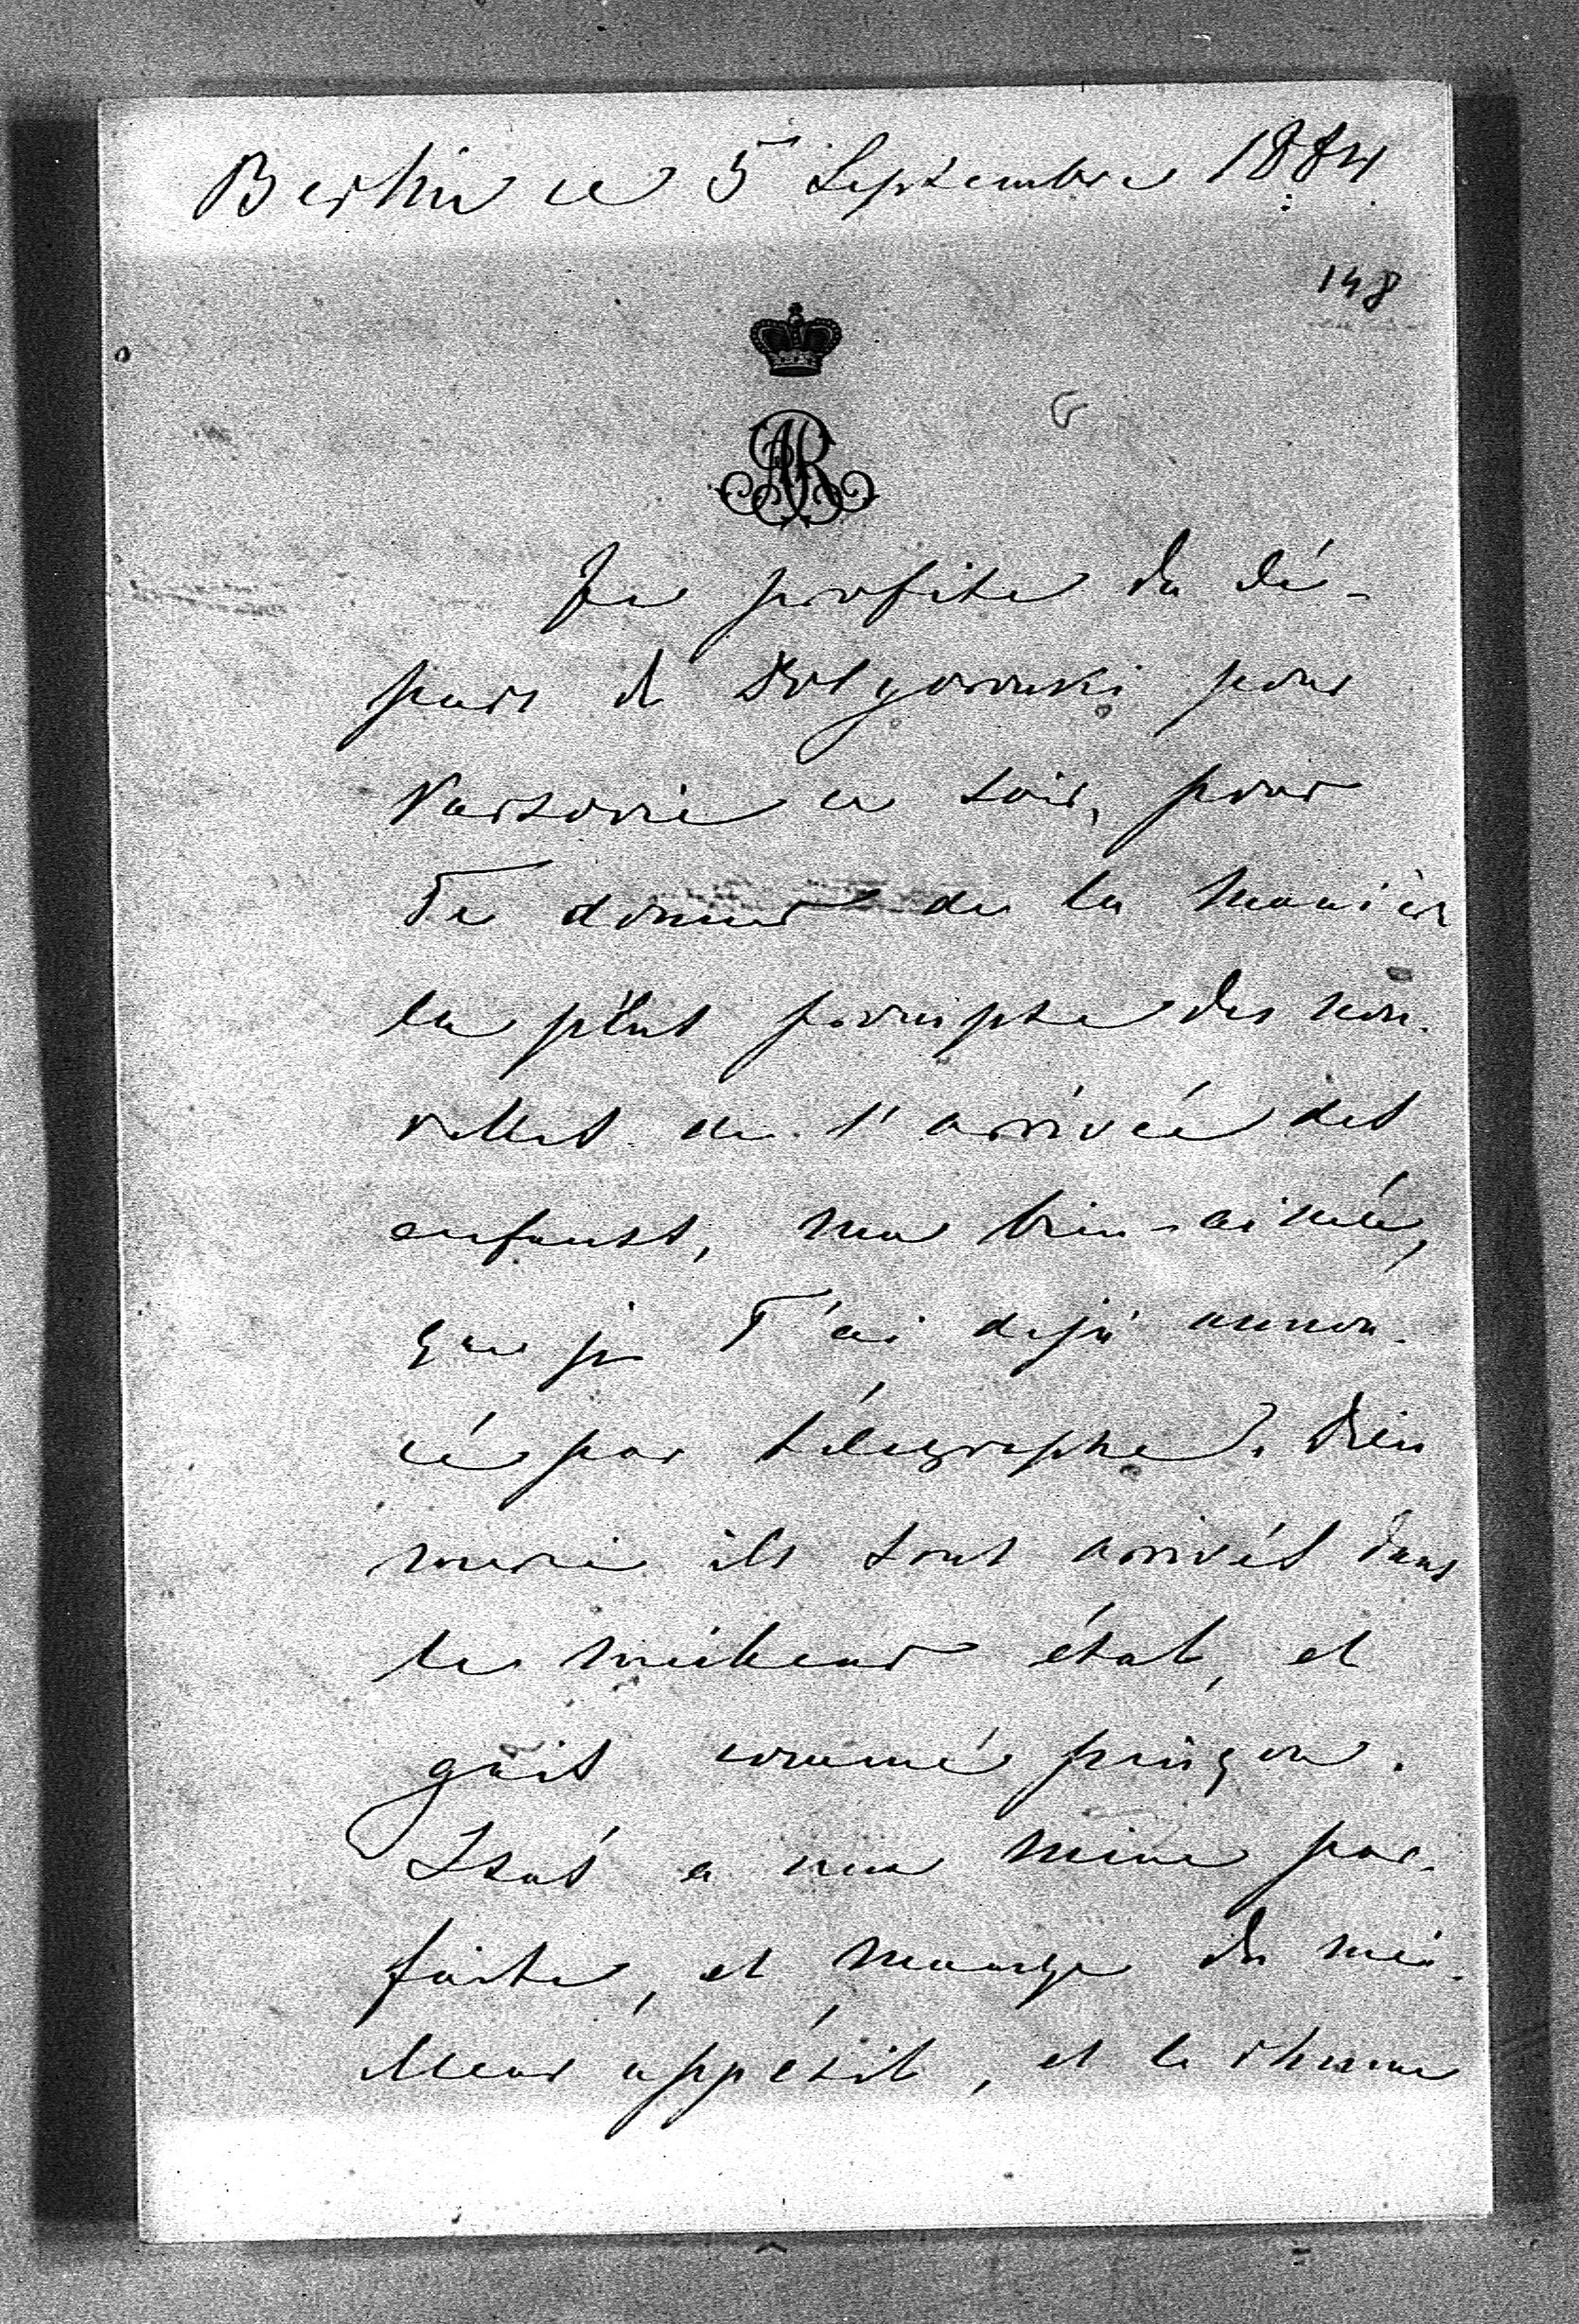 Berlin ce 5 Septembre 1884
148
AR
Je profite du dé-
part de Dolgorouki pour
Varsovie ce soir, pour
Te donner de la manière
la plus prompte des nou-
velles de l'arrivée des
enfants, ma bien-aimée,
que je T'ai déjà annon-
cé par télégraphe. Dieu
merci ils sont arrivés dans
le meilleur état, et
gais comme pinçon.
a une mine par-
faite, et mange du mei-
lleur appétit, et le rhume